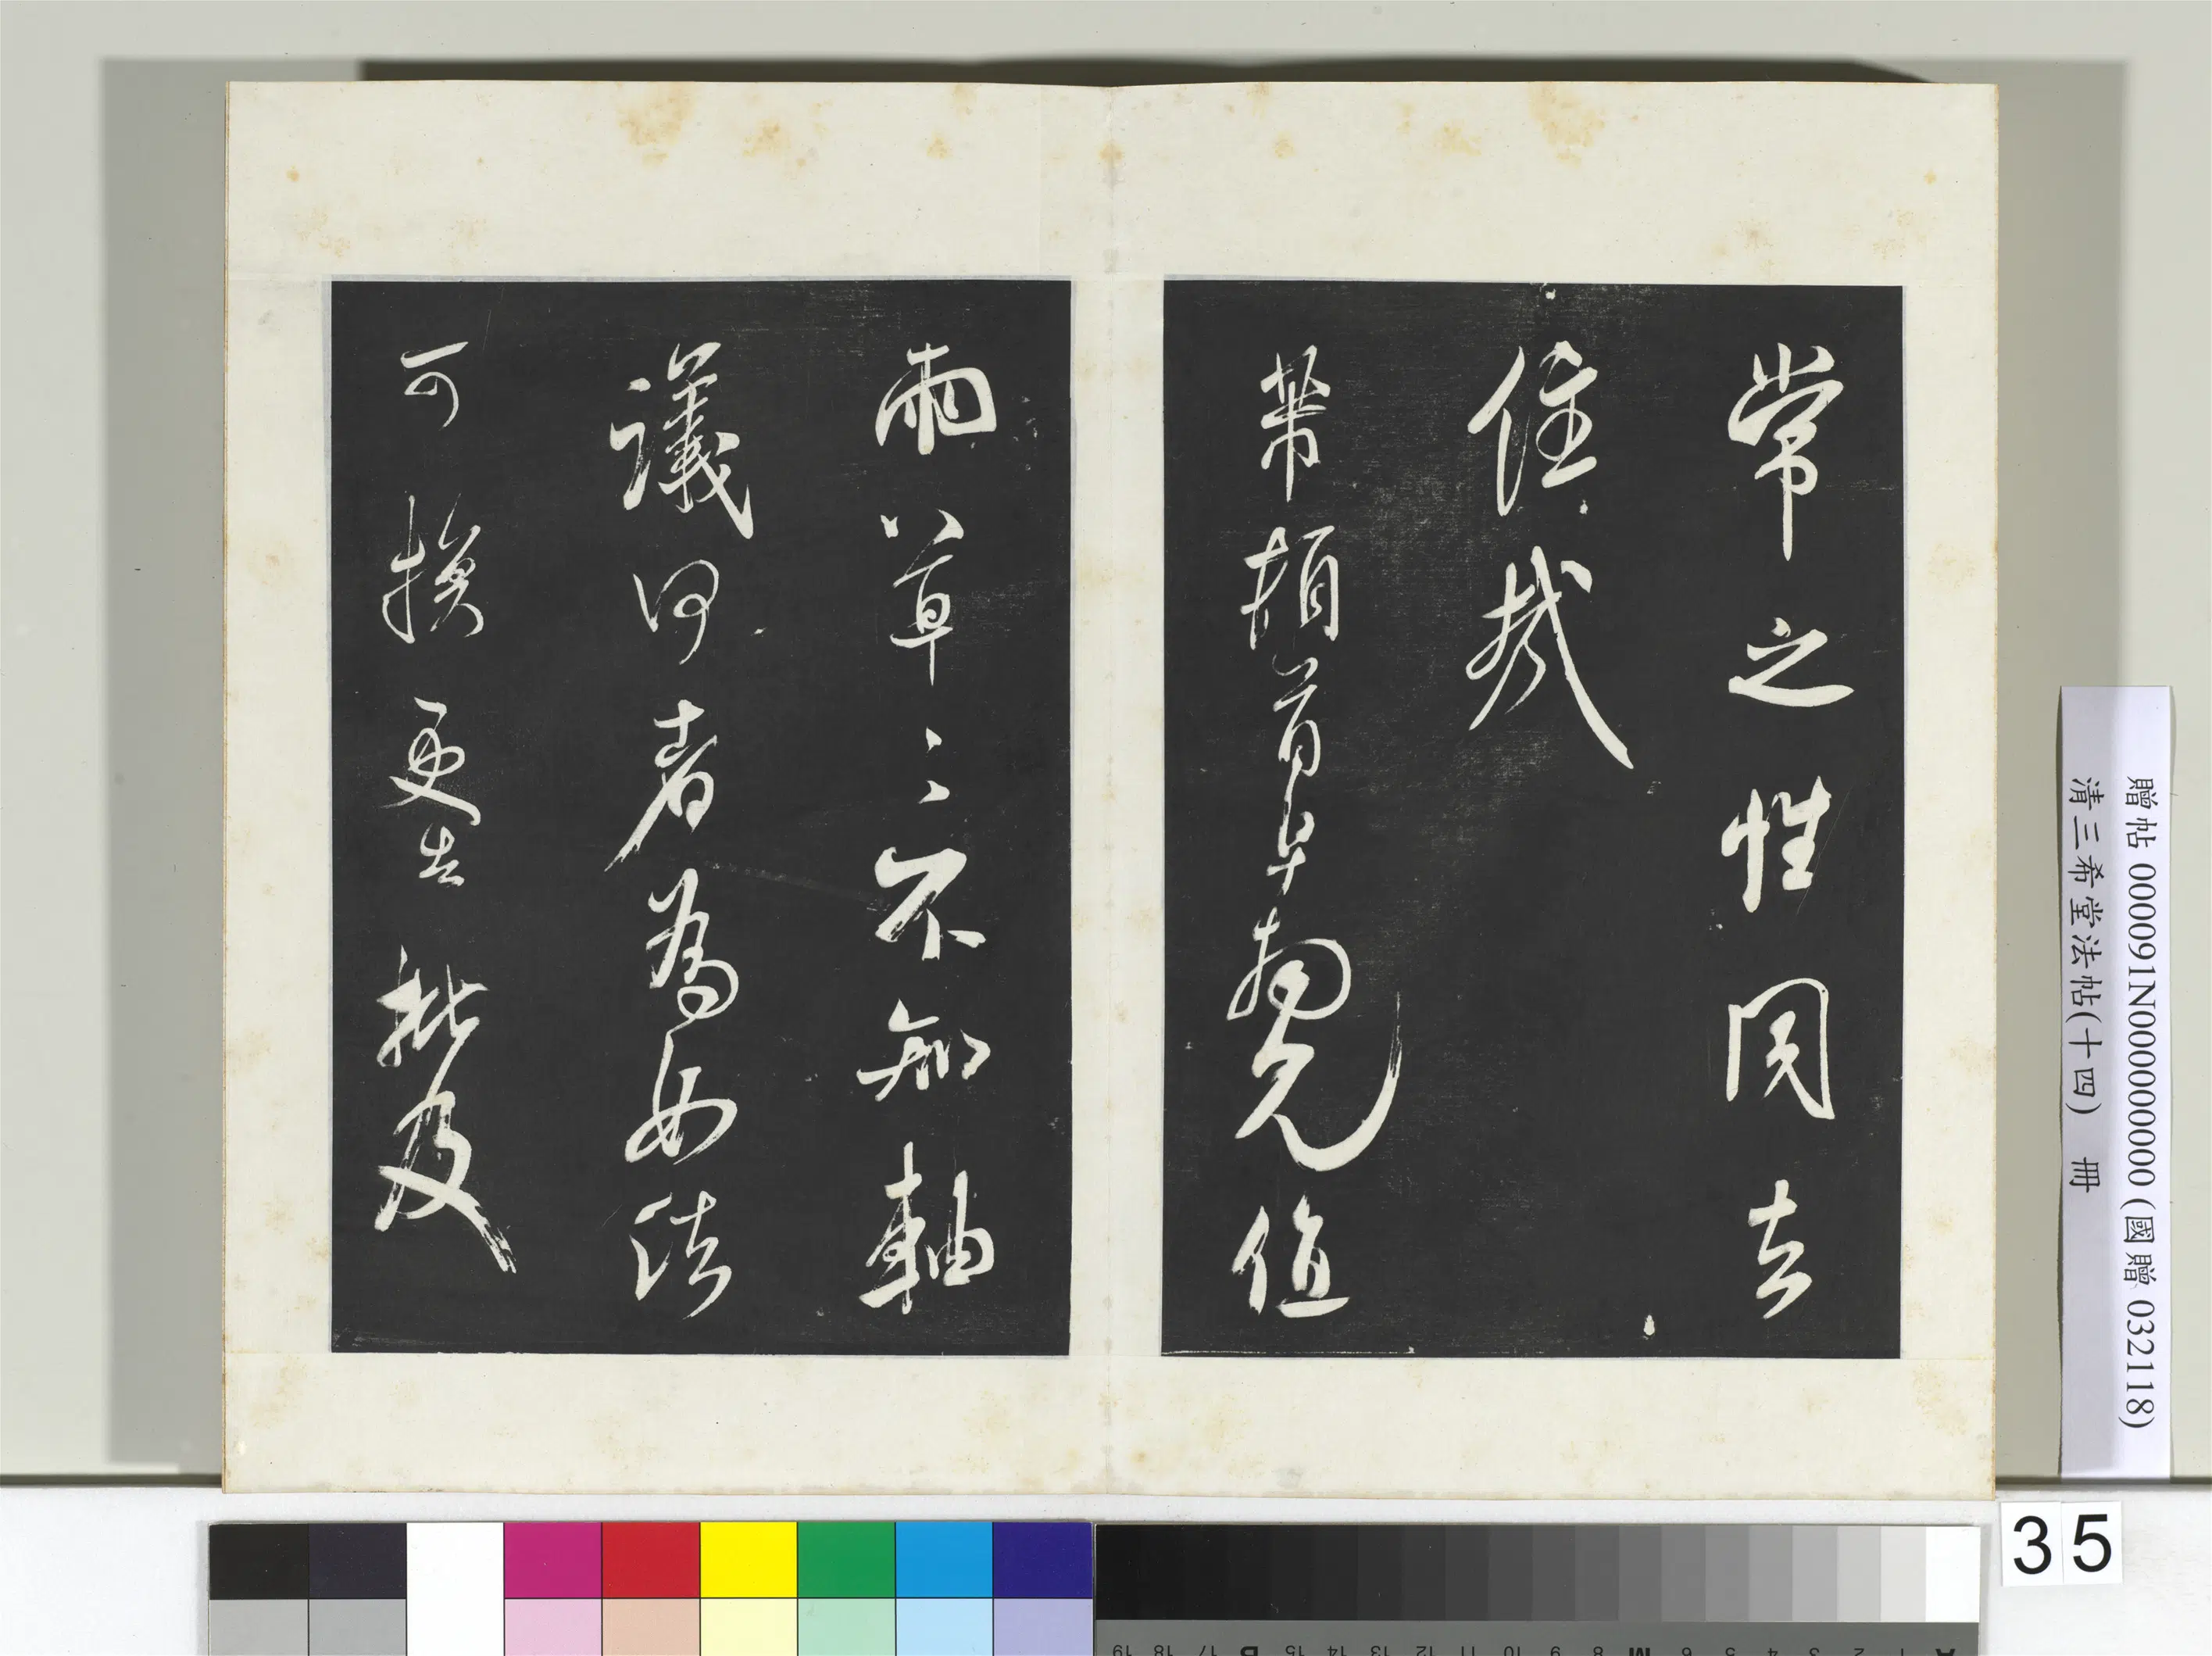 常之性同去
住哉
芾頓首早見值
雨草〻不知軸
議何者為如法
可換更告批及
贈帖 000091N000000000 (國贈 032118)
清三希堂法帖(十四) 冊
35